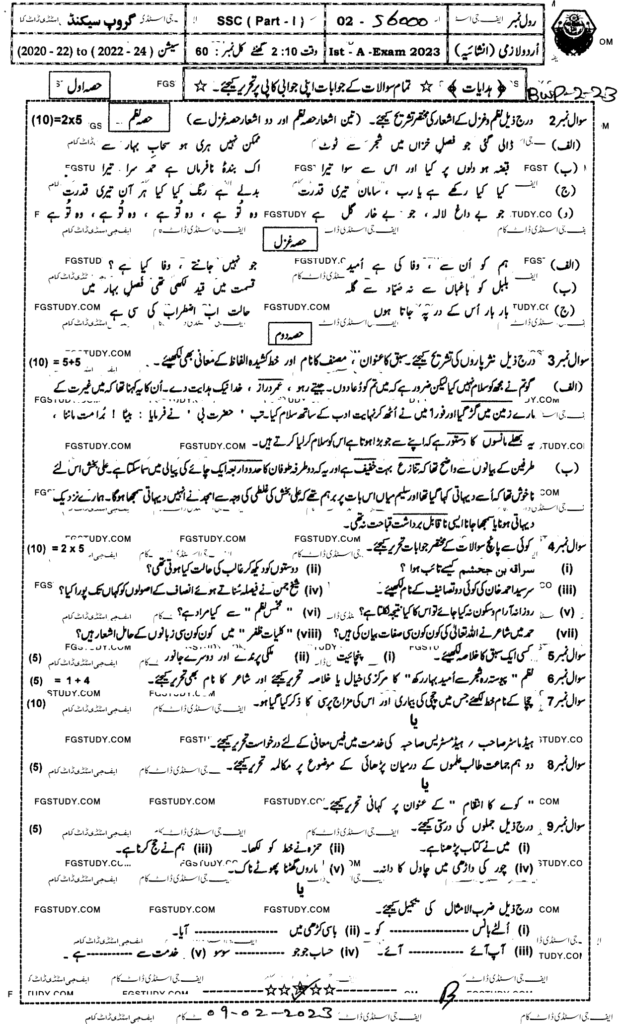 رول نمبر
02 - 56000
SSC ( Part - I )
گروپ سیکنڈ
اُردو لازمی (انشائیہ)
Ist - A -Exam 2023
وقت 2:10 گھنٹے کل نمبر: 60
سیشن (2022 - 24) to (2020 - 22)
BWP-2-23
﴿ ہدایات ﴾ ☆ تمام سوالات کے جوابات اپنی جوابی کاپی پر تحریر کیجئے۔ ☆
حصہ اول
سوال نمبر 2 درج ذیل نظم و غزل کے اشعار کی مختصر تشریح کیجئے۔ (تین اشعار حصہ نظم اور دو اشعار حصہ غزل سے) حصہ نظم (10)=2x5
(الف) ڈالی گئی جو فصلِ خزاں میں شجر سے ٹوٹ ممکن نہیں ہری ہو سحابِ بہار سے
(ب) قبضہ ہو دلوں پر کیا اور اس سے سوا تیرا اک بندۂ نافرماں ہے حمد سرا تیرا
(ج) کیا کیا رکھے ہے یا رب، سامان تیری قدرت بدلے ہے رنگ کیا کیا ہر آن تیری قدرت
(د) جو بے داغ لالہ، جو بے خار گل ہے وہ تُو ہے، وہ تُو ہے، وہ تُو ہے، وہ تُو ہے
حصہ غزل
(الف) ہم کو اُن سے، وفا کی ہے اُمید جو نہیں جانتے، وفا کیا ہے؟
(ب) بلبل کو باغباں سے نہ صیّاد سے گلہ قسمت میں قید لکھی تھی فصلِ بہار میں
(ج) بار بار اُس کے در پہ جاتا ہوں حالت اب اضطراب کی سی ہے
حصہ دوم
سوال نمبر 3 درج ذیل نثر پاروں کی تشریح کیجئے۔ سبق کا عنوان، مصنف کا نام اور خط کشیدہ الفاظ کے معانی بھی لکھیئے۔ (10) = 5+5
(الف) گو تم نے مجھ کو سلام نہیں کیا لیکن ضرور ہے کہ میں تم کو دُعا دوں۔ جیتے رہو، عمر دراز، خدا نیک ہدایت دے۔ اُن کا یہ کہنا تھا کہ میں غیرت کے
مارے زمین میں گڑ گیا اور فوراً میں نے اُٹھ کر نہایت ادب کے ساتھ سلام کیا۔ تب "حضرت بی" نے فرمایا : بیٹا! بُرا مت ماننا،
یہ بھلے مانسوں کا دستور ہے کہ اپنے سے جو بڑا ہوتا ہے اس کو سلام کر لیا کرتے ہیں۔
(ب) طرفین کے بیانوں سے واضح تھا کہ تنازع بہت خفیف ہے اور یہ کہ دو طرفہ طوفان کا حدود اربعہ ایک چائے کی پیالی میں سما سکتا ہے۔ علی بخش اس لئے
ناخوش تھا کہ اُسے دیہاتی کہا گیا تھا اور سلیم میاں اس بات پر برہم تھے کہ علی بخش کی غلطی کی وجہ سے امجد نے انہیں دیہاتی سمجھا ہوگا۔ ہمارے نزدیک
دیہاتی ہونا یا سمجھا جانا ایسی ناقابلِ برداشت قباحت نہ تھی۔
سوال نمبر 4 کوئی سے پانچ سوالات کے مختصر جوابات تحریر کیجئے۔ (10) = 2 x 5
(i) سراقہ بن جعشم کیسے تائب ہوا؟ (ii) دوستوں کو دیکھ کر غالب کی حالت کیا ہوتی تھی؟
(iii) سرسید احمد خان کی کوئی دو تصانیف کے نام لکھیئے۔ (iv) شیخ جمن نے فیصلہ سُناتے ہوئے انصاف کے اصولوں کو کہاں تک پورا کیا؟
(v) روزانہ آرام و سکون نہ کیا جائے تو اس کا کیا نتیجہ نکلتا ہے؟ (vi) "مخمس نظم" سے کیا مراد ہے؟
(vii) حمد میں شاعر نے اللہ تعالیٰ کی کون کون سی صفات بیان کی ہیں؟ (viii) "کلیات ظفر" میں کون کون سی زبانوں کے حامل اشعار ہیں؟
سوال نمبر 5 کسی ایک سبق کا خلاصہ لکھیئے۔ (i) پنچائیت (ii) ملکی پرندے اور دوسرے جانور (5)
سوال نمبر 6 نظم "پیوستہ رہ شجر سے اُمید بہار رکھ" کا مرکزی خیال یا خلاصہ تحریر کیجئے اور شاعر کا نام بھی تحریر کیجئے۔ (5) = 1 + 4
سوال نمبر 7 چچا کے نام خط لکھئے جس میں چچی کی بیماری اور اس کی مزاج پرسی کا ذکر کیا گیا ہو۔ (10)
یا
ہیڈ ماسٹر صاحب / ہیڈ مسٹریس صاحبہ کی خدمت میں فیس معافی کے لئے درخواست تحریر کیجئے۔
سوال نمبر 8 دو ہم جماعت طالب علموں کے درمیان پڑھائی کے موضوع پر مکالمہ تحریر کیجئے۔ (5)
یا
"کوے کا انتقام" کے عنوان پر کہانی تحریر کیجئے۔
سوال نمبر 9 درج ذیل جملوں کی درستی کیجئے۔ (5)
(i) میں نے کتاب پڑھنا ہے۔ (ii) حمزہ نے خط کو لکھا۔ (iii) ہم نے حج کرنا ہے۔
(iv) چور کی داڑھی میں چاول کا دانہ۔ (v) ماروں گھٹنا پھوٹے ناک۔
یا
درج ذیل ضرب الامثال کی تکمیل کیجئے۔
(i) اُلٹے بانس ---------- کو۔ (ii) باسی کڑھی میں ---------- آیا۔
(iii) آپ آئے ---------- آئے۔ (iv) حساب جو جو ---------- سو سو (v) خدمت سے ---------- ہے۔
☆☆☆☆☆
09-02-2023